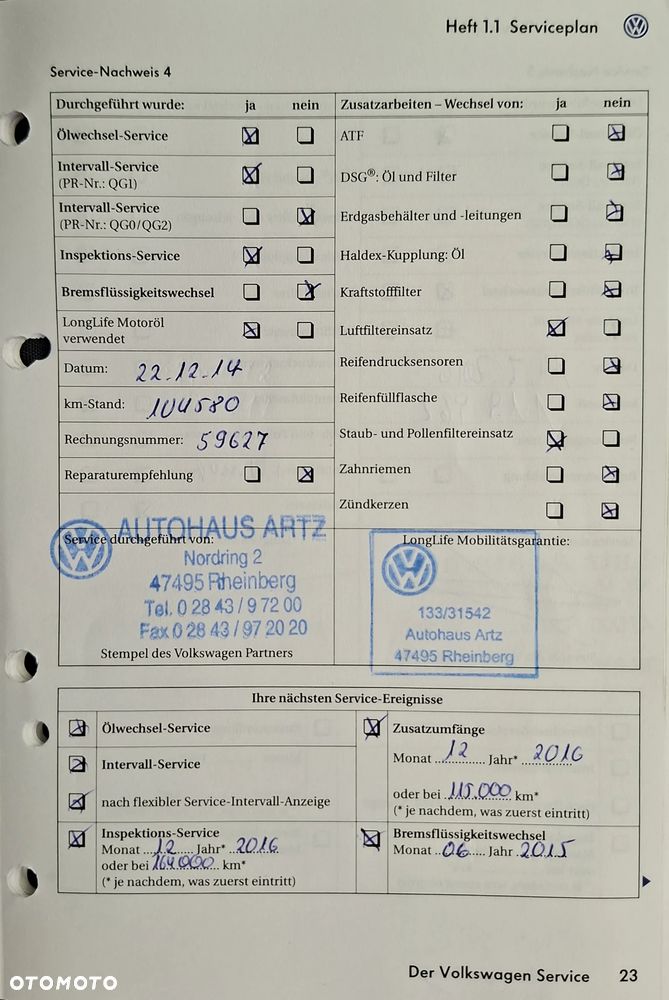 Heft 1.1 Serviceplan
Service-Nachweis 4
Durchgeführt wurde: ja nein
Zusatzarbeiten – Wechsel von: ja nein
Ölwechsel-Service
ATF
Intervall-Service
(PR-Nr.: QG1)
DSG®: Öl und Filter
Intervall-Service
(PR-Nr.: QG0/QG2)
Erdgasbehälter und -leitungen
Inspektions-Service
Haldex-Kupplung: Öl
Bremsflüssigkeitswechsel
Kraftstofffilter
LongLife Motoröl
verwendet
Luftfiltereinsatz
Datum: 22.12.14
Reifendrucksensoren
km-Stand: 104580
Reifenfüllflasche
Rechnungsnummer: 59627
Staub- und Pollenfiltereinsatz
Reparaturempfehlung
Zahnriemen
Zündkerzen
Service durchgeführt von:
AUTOHAUS ARTZ
Nordring 2
47495 Rheinberg
Tel. 0 28 43 / 9 72 00
Fax 0 28 43 / 97 20 20
Stempel des Volkswagen Partners
LongLife Mobilitätsgarantie:
133/31542
Autohaus Artz
47495 Rheinberg
Ihre nächsten Service-Ereignisse
Ölwechsel-Service
Intervall-Service
nach flexibler Service-Intervall-Anzeige
Inspektions-Service
Monat 12 Jahr* 2016
oder bei 164000 km*
(* je nachdem, was zuerst eintritt)
Zusatzumfänge
Monat 12 Jahr* 2016
oder bei 115.000 km*
(* je nachdem, was zuerst eintritt)
Bremsflüssigkeitswechsel
Monat 06 Jahr 2015
Der Volkswagen Service 23
OTOMOTO